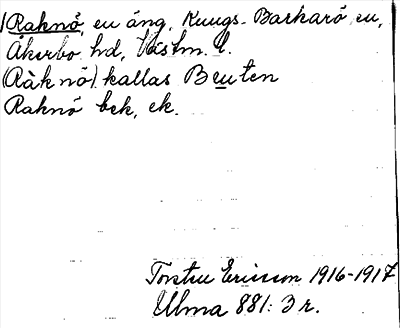 (Raknö, en äng, Kungs-Barkarö sn,
Åkerbo hd, Västm. l.
(Råk nö) kallas Beuten
Raknö bck, ek.
Torsten Ericson 1916-1917
Ulma 881: 3 r.